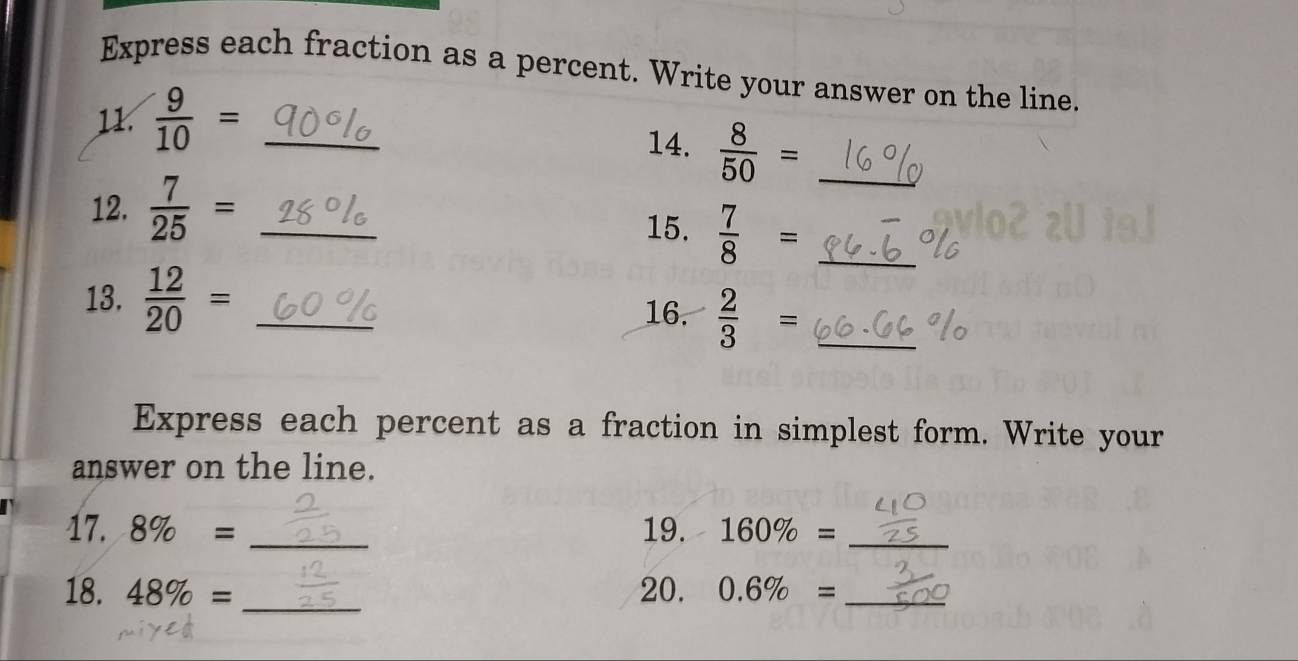 Express each fraction as a percent. Write your answer on the line.
11. 9/10 = 90%
12. 7/25 = 28%
13. 12/20 = 60%
14. 8/50 = 16%
15. 7/8 = 84.6̅%
16. 2/3 = 66.66%
Express each percent as a fraction in simplest form. Write your
answer on the line.
17. 8% = 2/25
18. 48% = 12/25
mixed
19. 160% = 40/25
20. 0.6% = 3/500